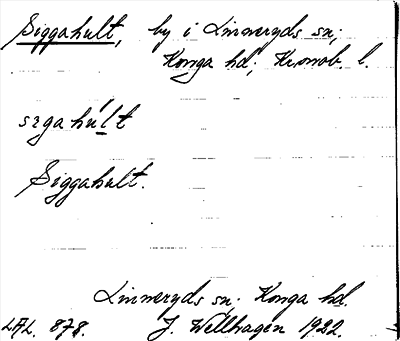 Siggahult, by i Linneryds sn;
Konga hd; Kronob. l.
sɪgahúlt
Siggahult.
Linneryds sn. Konga hd.
LAL. 878. J. Wellhagen 1922.